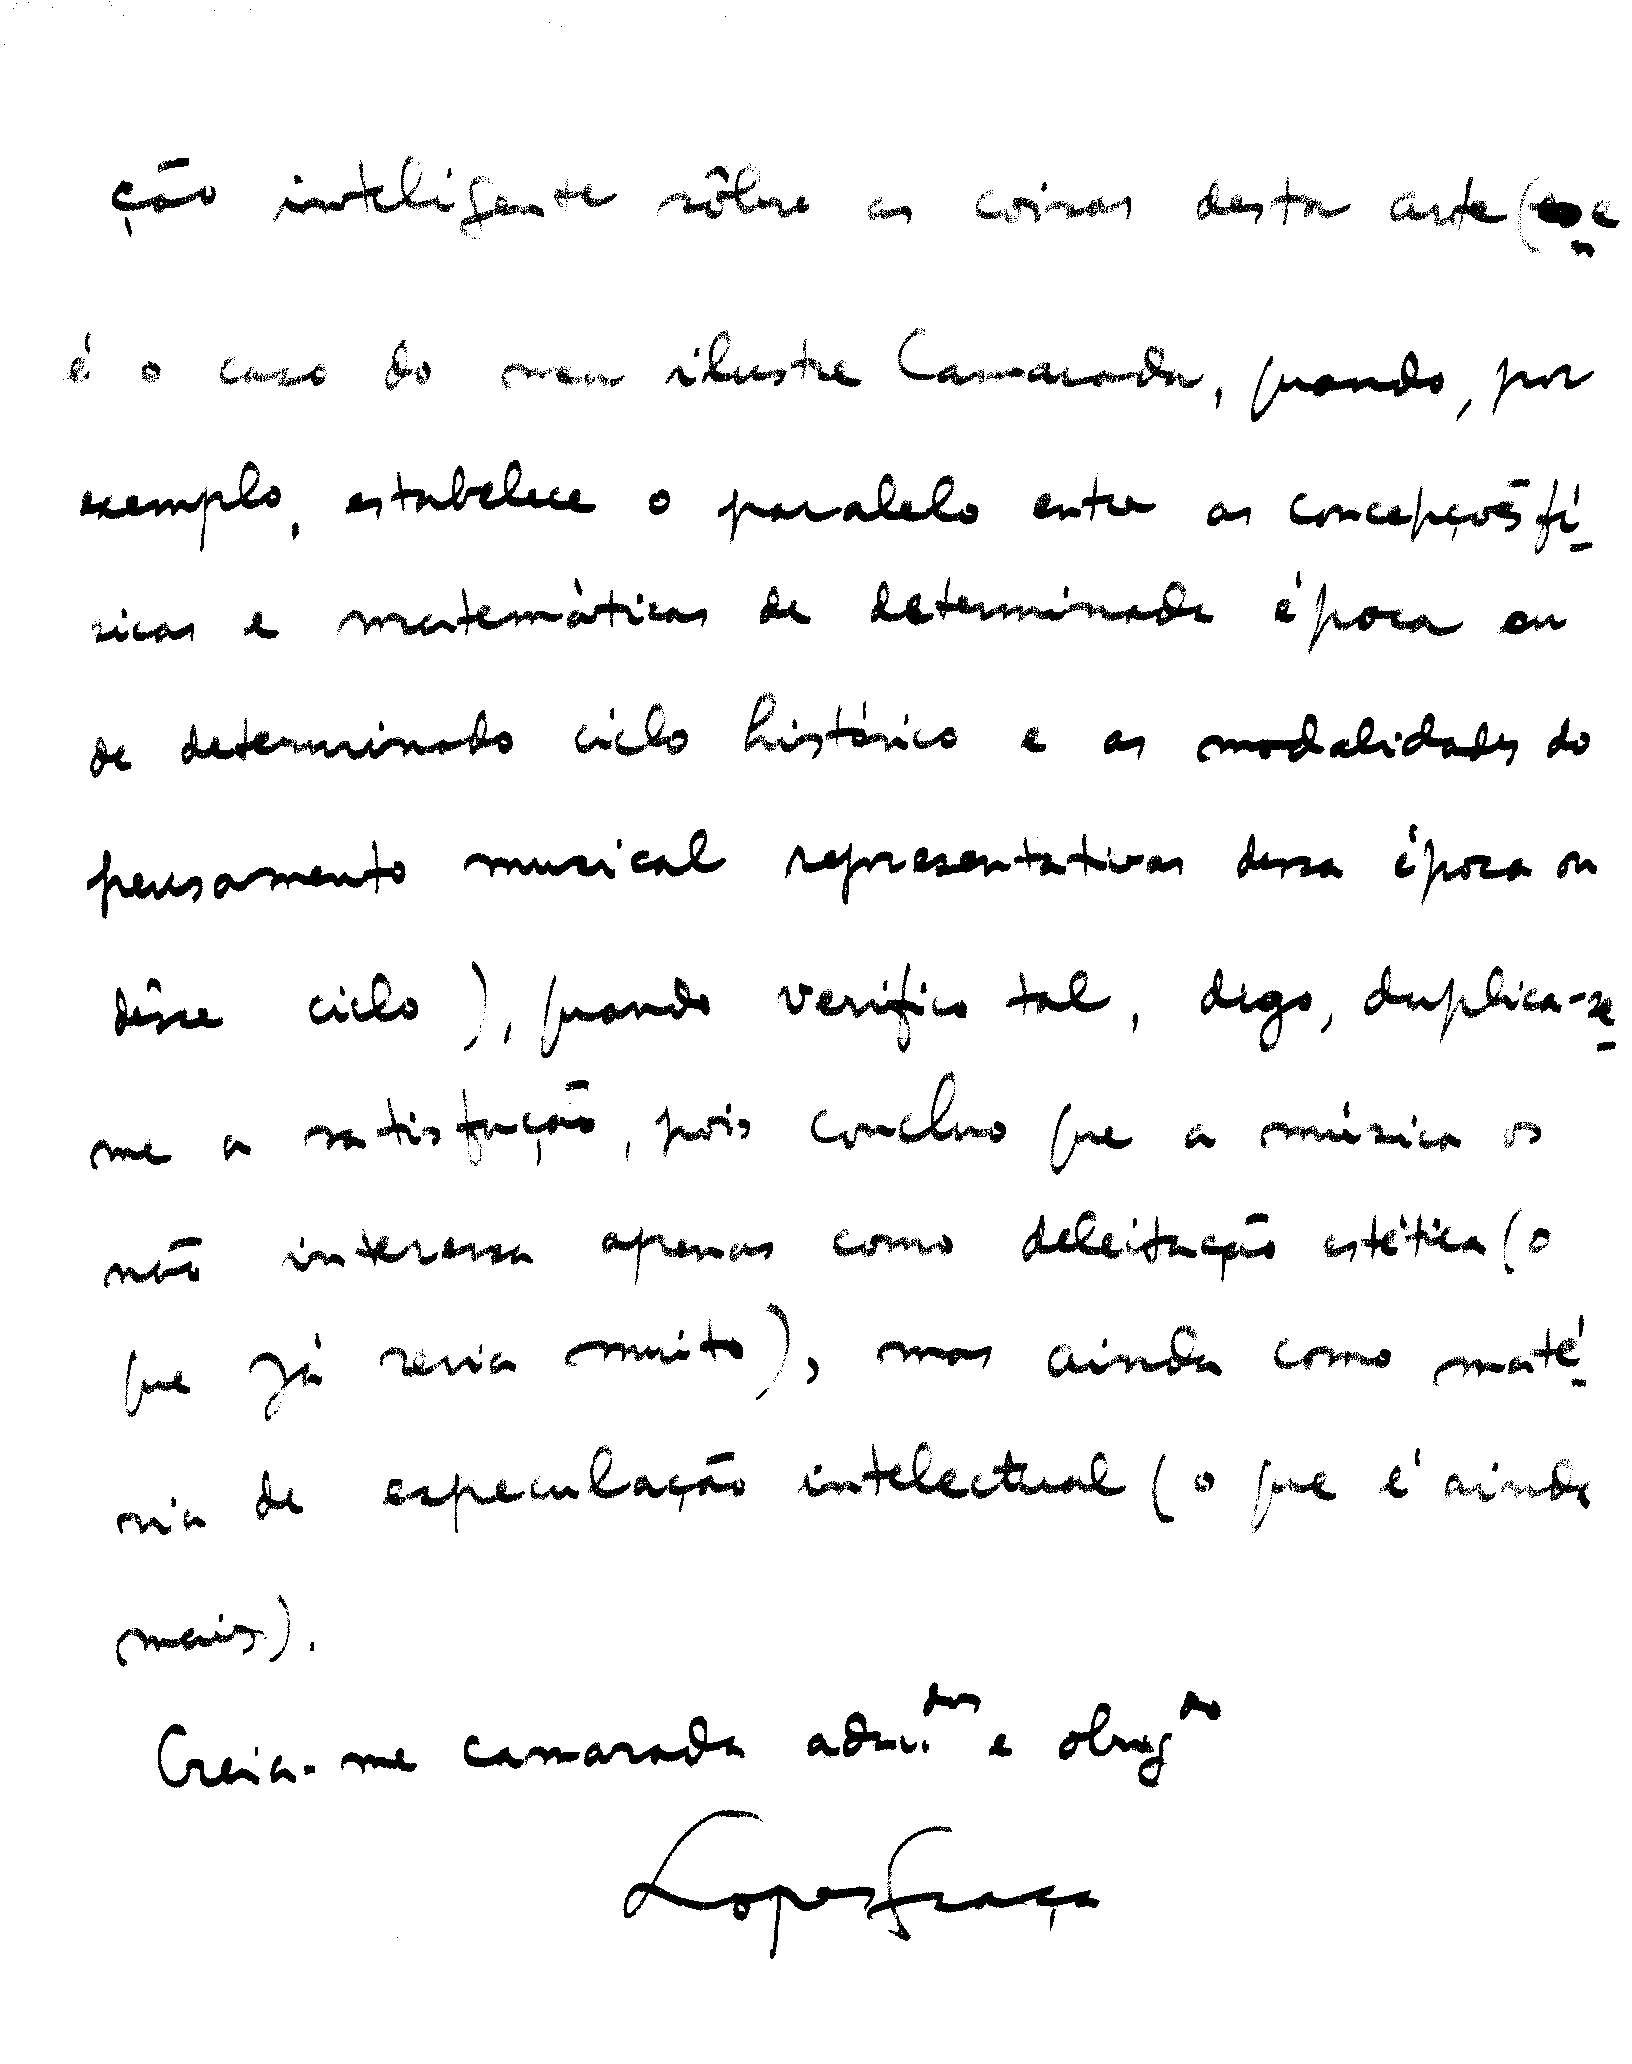 ção inteligente sôbre as coisas desta arte (e
é o caso do meu ilustre Camarada, quando, por
exemplo, estabelece o paralelo entre as concepções fí-
sicas e matemáticas de determinada época ou
de determinado ciclo histórico e as modalidades do
pensamento musical representativas dessa época ou
dêsse ciclo), quando verifico tal, digo, duplica-se-
me a satisfação, pois concluo que a música os
não interessa apenas como deleitação estética (o
que já seria muito), mas ainda como maté-
ria de especulação intelectual (o que é ainda
mais).
Creia-me camarada adm.dor e obrigdo
Lopes Graça